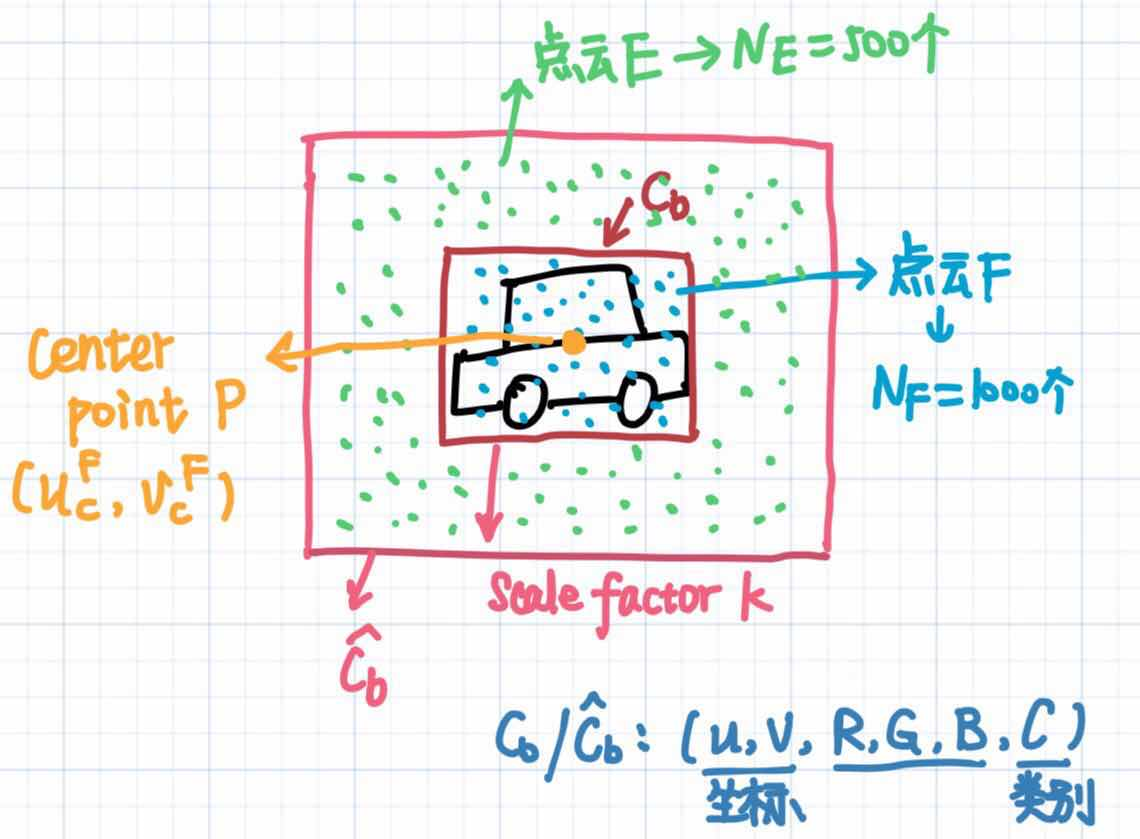 点云E → N_E = 500个
C_b
点云F
↓
N_F = 1000个
Center
point P
(u_c^F, v_c^F)
Scale factor k
Ĉ_b
C_b/Ĉ_b: (u, v, R, G, B, C)
坐标、 类别